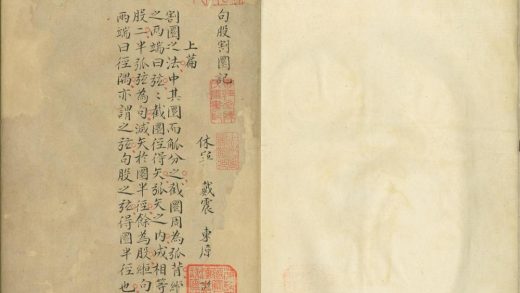 句股割圜記
休寧　戴震　東原
上篇
割圜之法中其圜而觚分之截圜周為弧背縆
之兩端曰弦〻截圜徑得矢弧矢之内成相等
股二半弧弦為句減矢於圜半徑餘為股縆句
兩端曰徑隅亦謂之弦句股之弦得圜半徑也